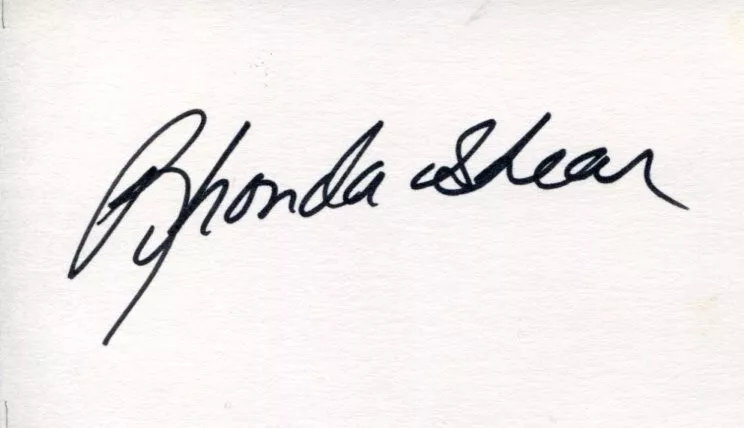 Rhonda Shear